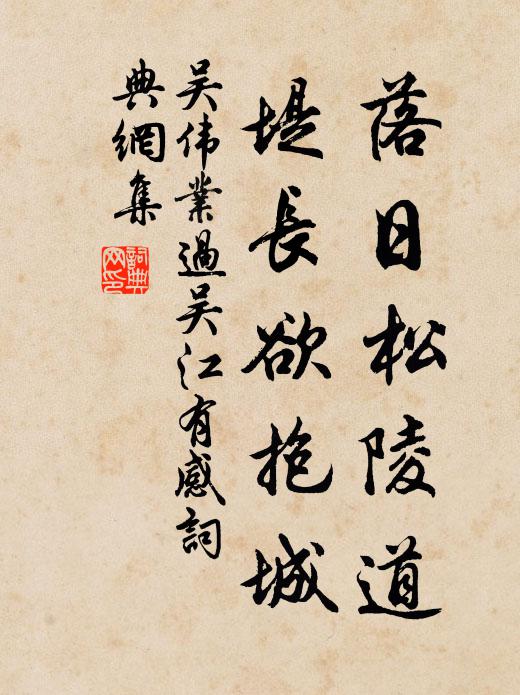 落日松陵道
堤長欲抱城
吴伟業過吴江有感詞
典網集
詞典
网印